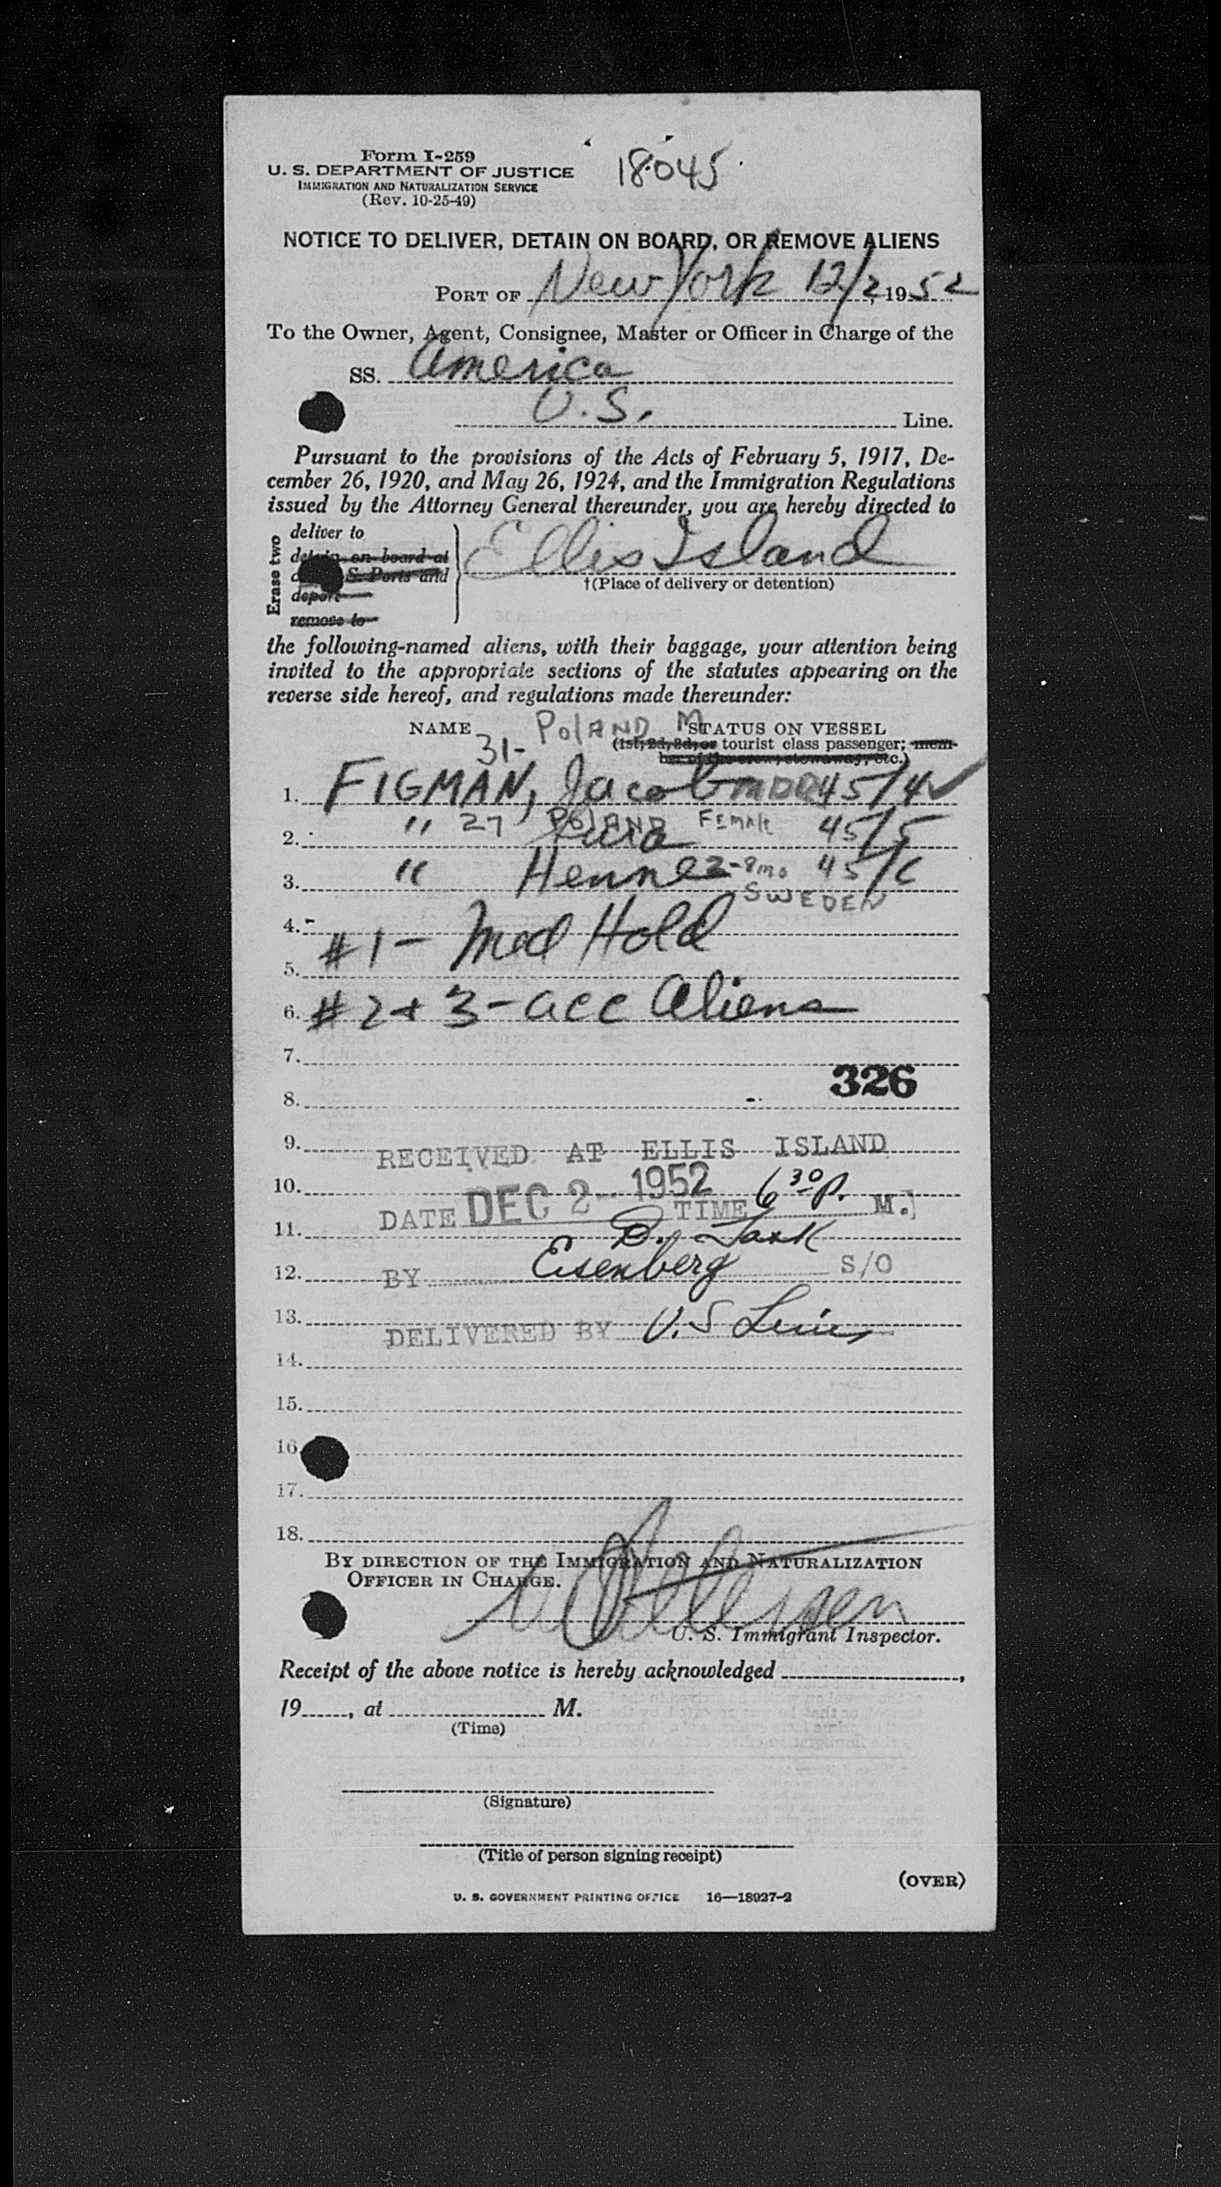 Form I-259
U. S. DEPARTMENT OF JUSTICE
IMMIGRATION AND NATURALIZATION SERVICE
(Rev. 10-25-49)
18045
NOTICE TO DELIVER, DETAIN ON BOARD, OR REMOVE ALIENS
PORT OF New York 12/2, 1952
To the Owner, Agent, Consignee, Master or Officer in Charge of the
SS. America
U.S. Line.
Pursuant to the provisions of the Acts of February 5, 1917, De-
cember 26, 1920, and May 26, 1924, and the Immigration Regulations
issued by the Attorney General thereunder, you are hereby directed to
Erase two
deliver to
detain on board at
S. Ports and
deport
remove to
Ellis Island
†(Place of delivery or detention)
the following-named aliens, with their baggage, your attention being
invited to the appropriate sections of the statutes appearing on the
reverse side hereof, and regulations made thereunder:
NAME STATUS ON VESSEL
31- POLAND M
(1st, 2d, 3d, or tourist class passenger; mem-
ber of the crew, stowaway, etc.)
1. FIGMAN, Jacob 45/4 ✓
2. " 27 POLAND FEMALE 45/5
3. " Henne 2-8mo 45/6
SWEDEN
4.
#1 - Med Hold
5.
6. #2 + 3 - acc Aliens
7.
326
8.
9.
RECEIVED AT ELLIS ISLAND
10.
DATE DEC 2 - 1952 TIME 6 30 P. M.
11.
12.
BY Eisenberg S/O
13.
DELIVERED BY U.S Lines
14.
15.
16.
17.
18.
BY DIRECTION OF THE IMMIGRATION AND NATURALIZATION
OFFICER IN CHARGE.
U. S. Immigrant Inspector.
Receipt of the above notice is hereby acknowledged ,
19 , at M.
(Time)
(Signature)
(Title of person signing receipt)
(OVER)
U. S. GOVERNMENT PRINTING OFFICE 16—18927-2